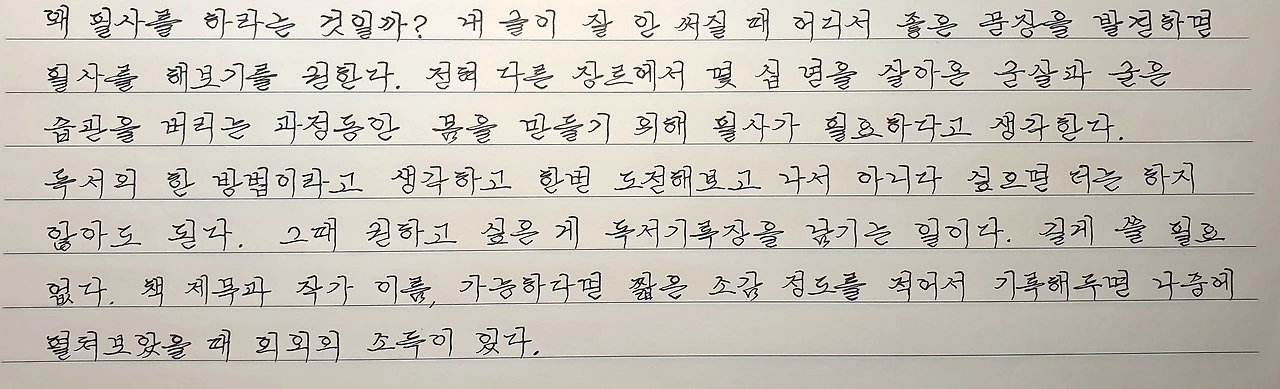 왜 필사를 하라는 것일까? 내 글이 잘 안 써질 때 어디서 좋은 문장을 발견하면
필사를 해보기를 권한다. 전혀 다른 장르에서 몇 십 년을 살아온 군살과 굳은
습관을 버리는 과정동안 몸을 만들기 위해 필사가 필요하다고 생각한다.
독서의 한 방법이라고 생각하고 한번 도전해보고 나서 아니다 싶으면 더는 하지
않아도 된다. 그때 권하고 싶은 게 독서기록장을 남기는 일이다. 길게 쓸 필요
없다. 책 제목과 작가 이름, 가능하다면 짧은 소감 정도를 적어서 기록해두면 나중에
펼쳐보았을 때 의외의 소득이 있다.